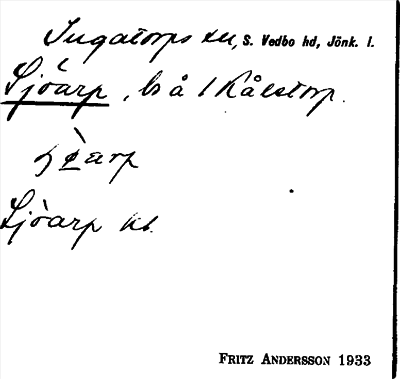 Ingatorps sn, S. Vedbo hd, Jönk. l.
Sjöarp, ls å 1 Kålstorp.
Sjöarp kt.
FRITZ ANDERSSON 1933